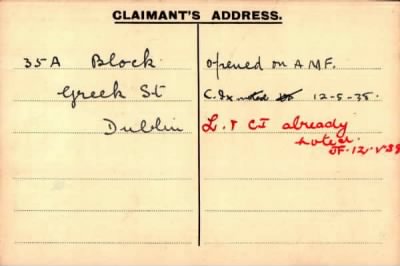 CLAIMANT'S ADDRESS.
35A Block
Greek St
Dublin
opened on A.M.F.
C. Ix noted 12-5-38.
L. & CI already
noted.
JF. 12.V.38